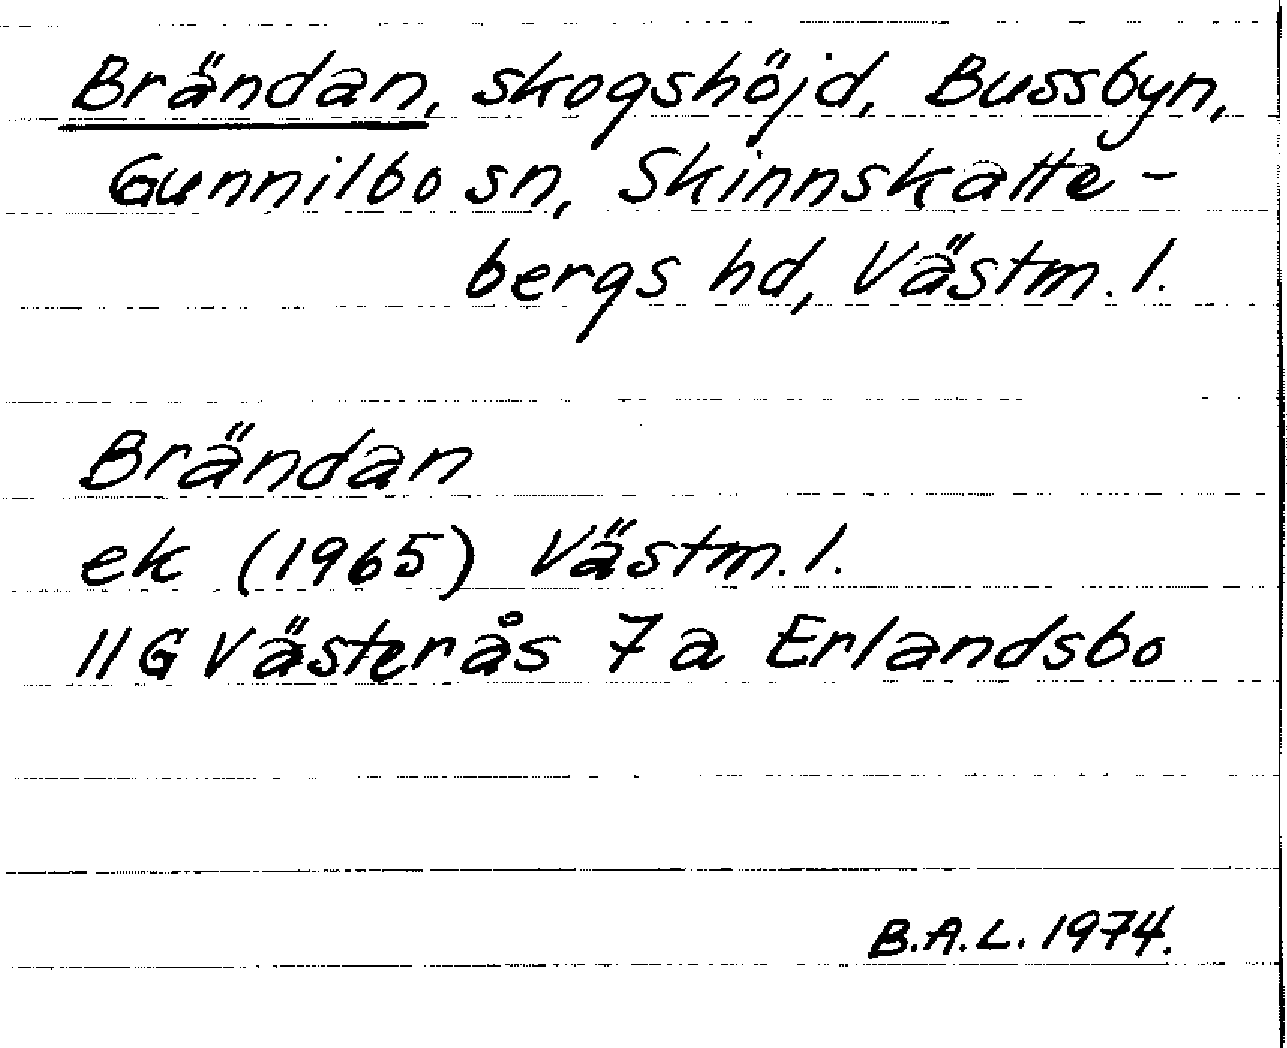 Brändan, skogshöjd, Bussbyn,
Gunnilbo sn, Skinnskatte-
bergs hd, Västm. l.
Brändan
ek (1965) Västm. l.
11G Västerås 7a Erlandsbo
B.A.L. 1974.